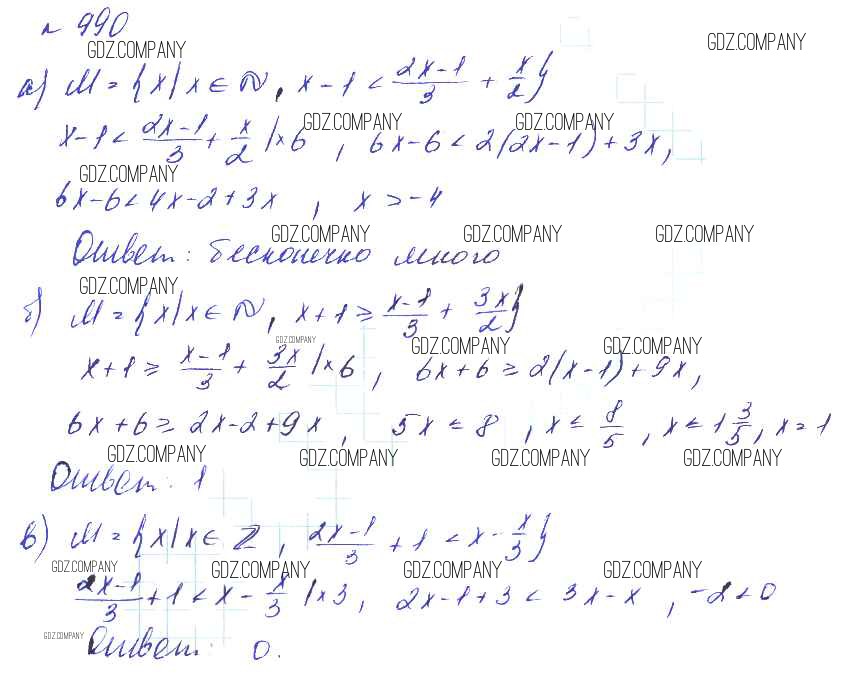 № 990
GDZ.COMPANY GDZ.COMPANY
а) M = {x | x ∈ N, x - 1 < (2x-1)/3 + x/2}
GDZ.COMPANY GDZ.COMPANY
x - 1 < (2x-1)/3 + x/2 | ×6, 6x - 6 < 2(2x-1) + 3x,
GDZ.COMPANY
6x - 6 < 4x - 2 + 3x, x > -4
GDZ.COMPANY GDZ.COMPANY GDZ.COMPANY
Ответ: бесконечно много
GDZ.COMPANY
б) M = {x | x ∈ N, x + 1 ≥ (x-1)/3 + 3x/2}
GDZ.COMPANY GDZ.COMPANY GDZ.COMPANY
x + 1 ≥ (x-1)/3 + 3x/2 | ×6, 6x + 6 ≥ 2(x-1) + 9x,
6x + 6 ≥ 2x - 2 + 9x, 5x ≤ 8, x ≤ 8/5, x ≤ 1 3/5, x = 1
GDZ.COMPANY GDZ.COMPANY GDZ.COMPANY GDZ.COMPANY
Ответ: 1
в) M = {x | x ∈ Z, (2x-1)/3 + 1 < x - x/3}
GDZ.COMPANY GDZ.COMPANY GDZ.COMPANY GDZ.COMPANY
(2x-1)/3 + 1 < x - x/3 | ×3, 2x - 1 + 3 < 3x - x, -2 < 0
GDZ.COMPANY
Ответ: 0.